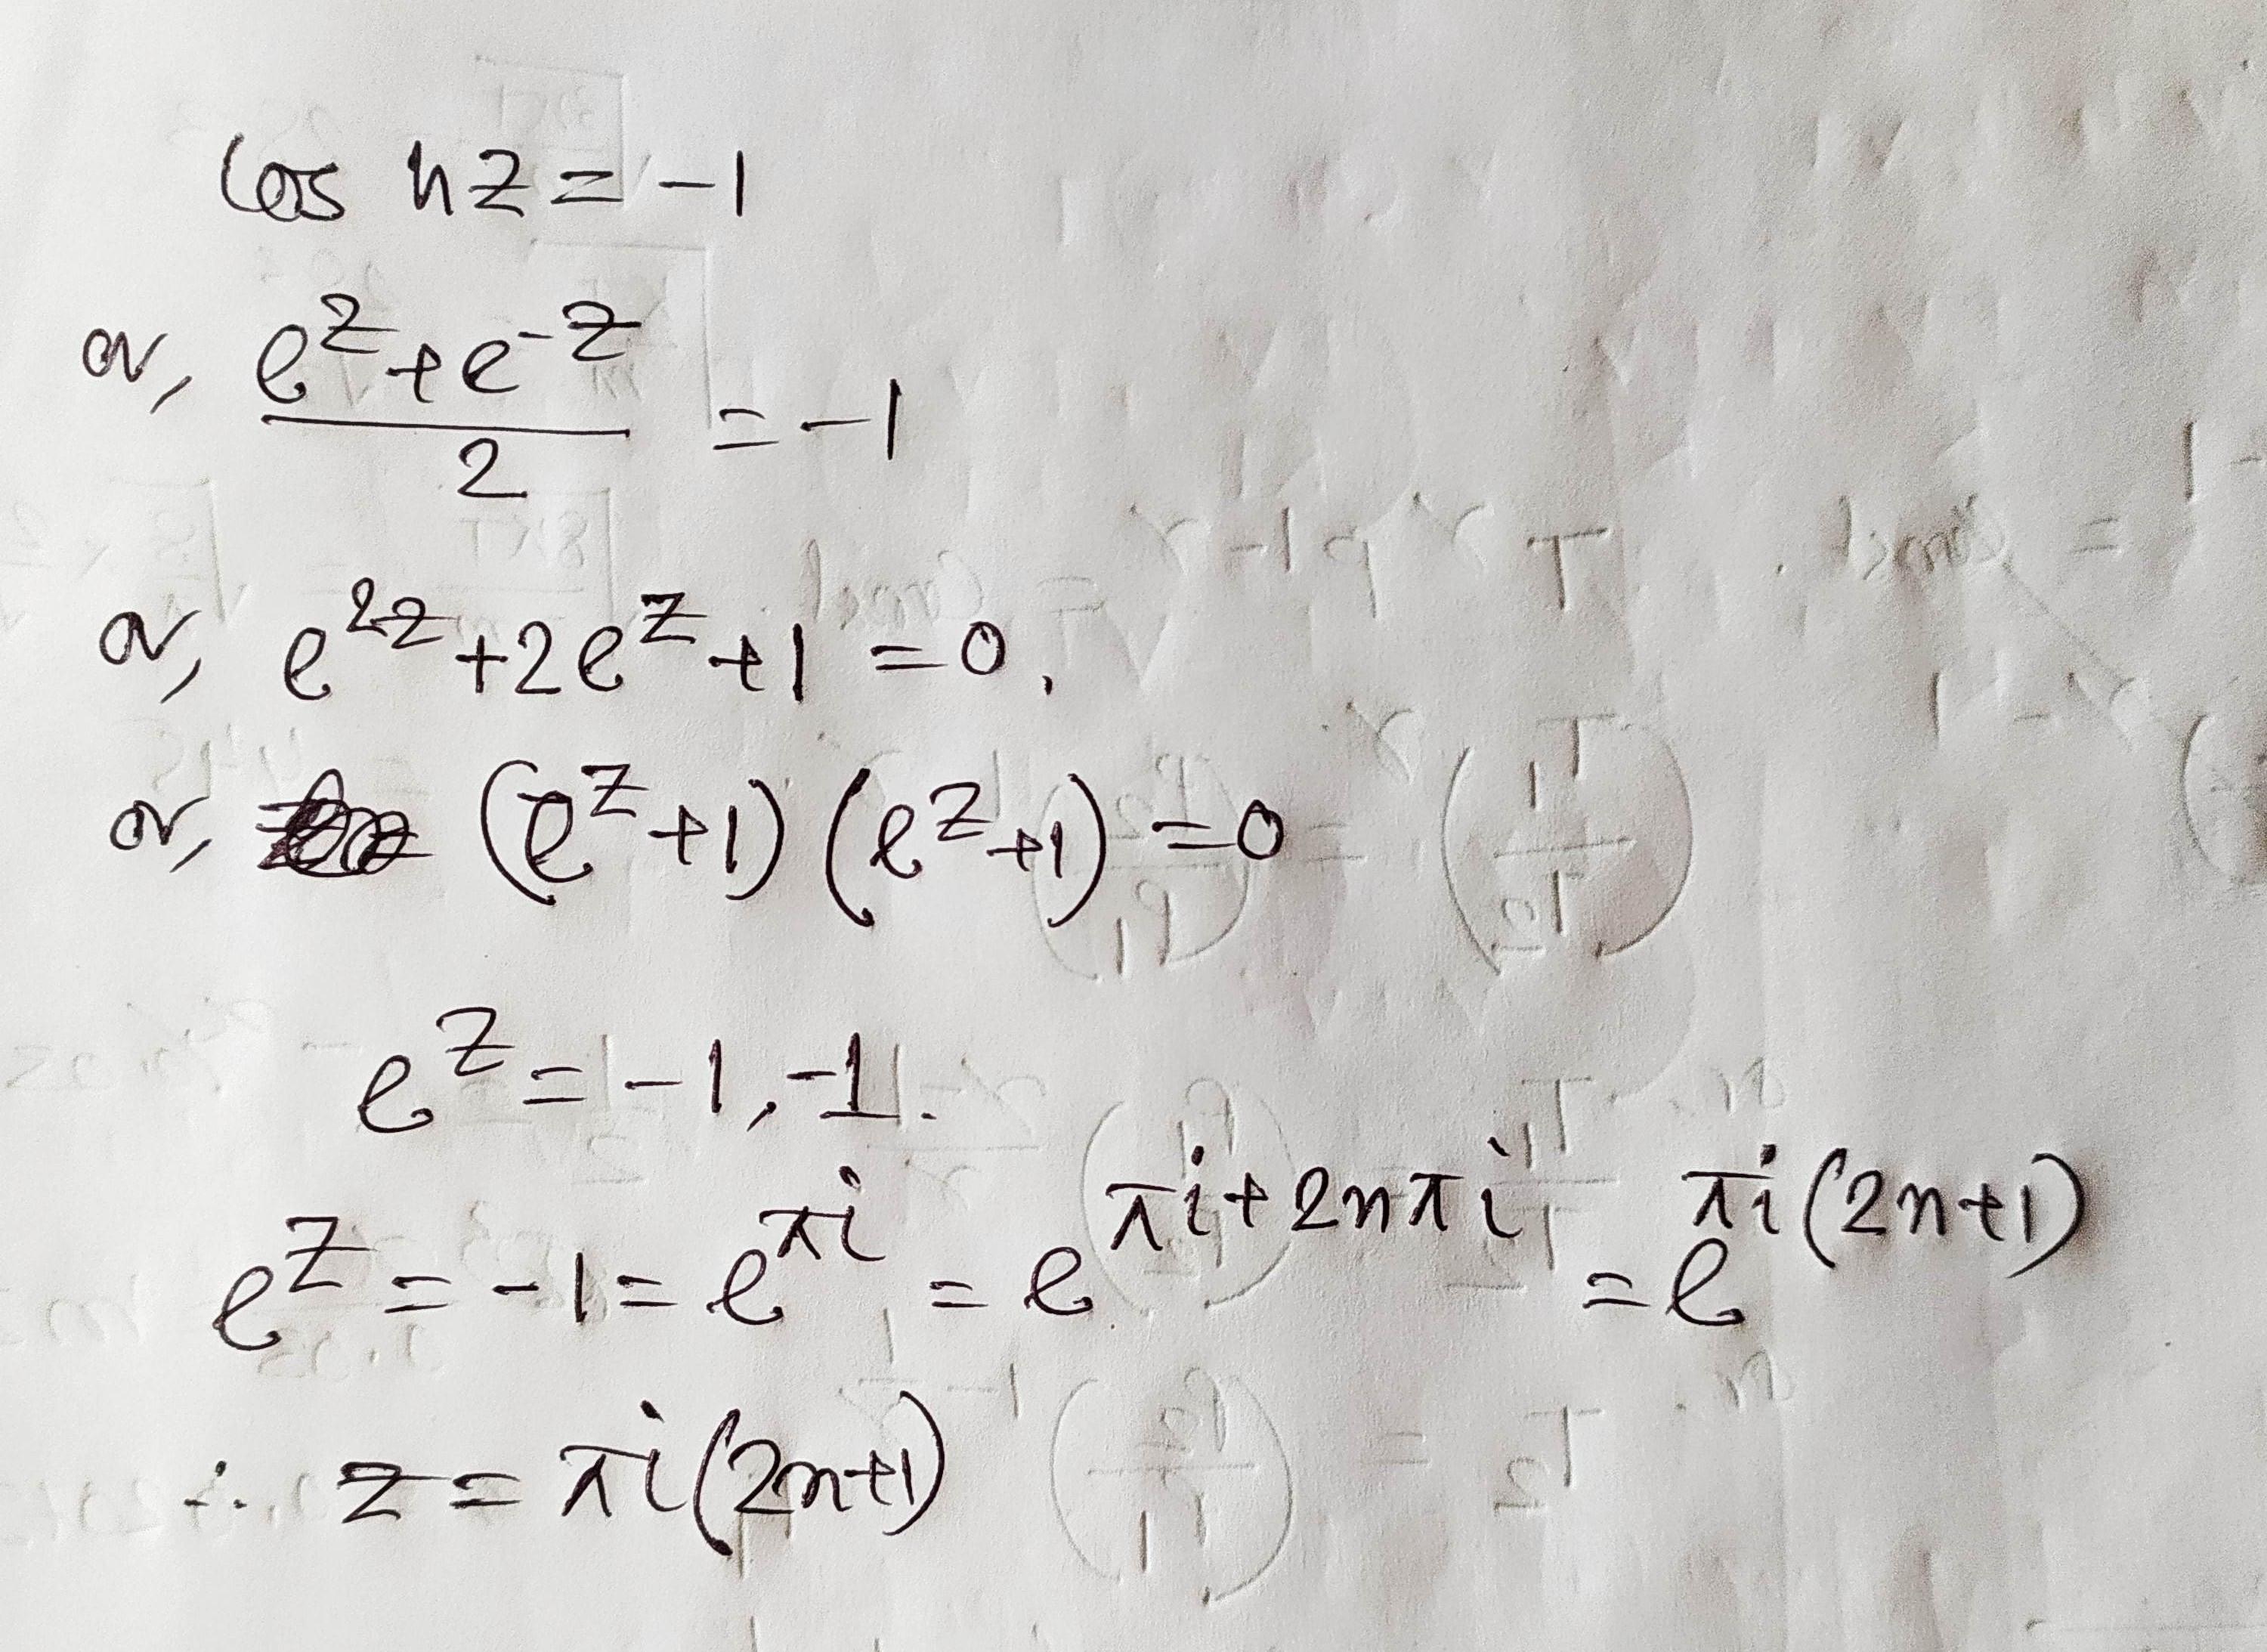 Cos hz = -1
or, e^z + e^-z / 2 = -1
or, e^2z + 2e^z + 1 = 0,
or, (e^z + 1) (e^z + 1) = 0
e^z = -1, -1.
e^z = -1 = e^πi = e^πi+2nπi = e^πi(2n+1)
∴ z = πi(2n+1)